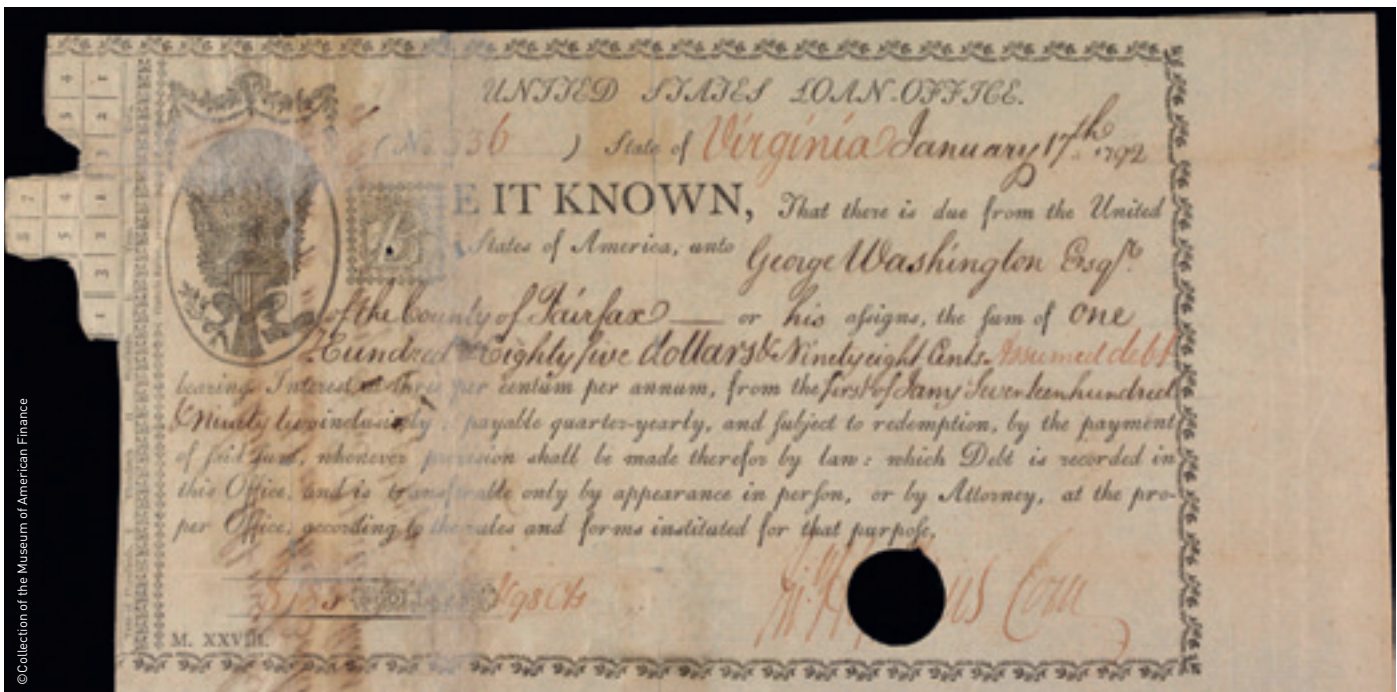 UNITED STATES LOAN-OFFICE.
(No 336 ) State of Virginia January 17th 1792
BE IT KNOWN, That there is due from the United
States of America, unto George Washington Esqr.
of the County of Fairfax — or his aſsigns, the ſum of one
Hundred & Eighty five dollars & Ninety eight Cents. Assumed debt
bearing Intereſt at Three per centum per annum, from the first of Jany Seventeen hundred
& Ninety two inclusively : payable quarter-yearly, and ſubject to redemption, by the payment
of ſaid ſum, whenever proviſion shall be made therefor by law : which Debt is recorded in
this Office, and is transferable only by appearance in perſon, or by Attorney, at the pro-
per Office, according to the rules and forms inſtituted for that purpoſe.
$185 DOLLARS 98 Cts
Com
M. XXVIII.
©Collection of the Museum of American Finance